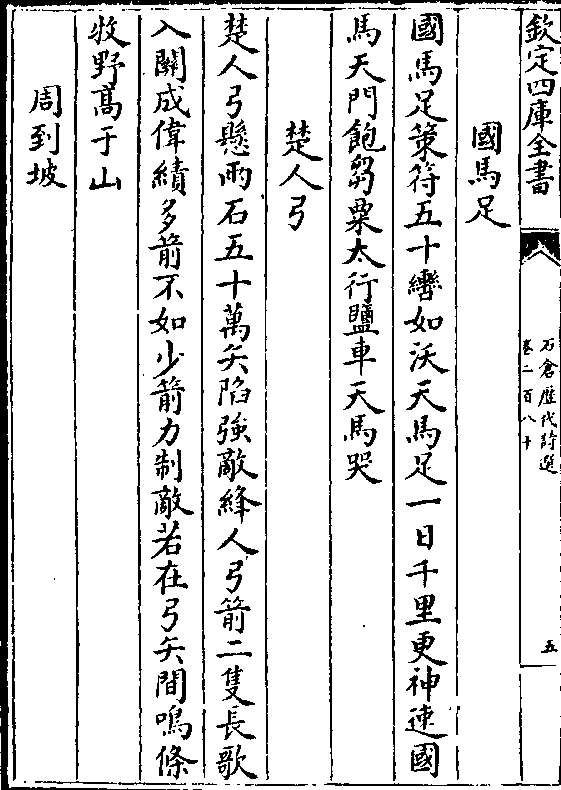 欽定四庫全書
石倉歷代詩選
卷二百八十
五
國馬足
國馬足策符五十轡如沃天馬足一日千里更神速國
馬天門飽芻粟太行鹽車天馬哭
楚人弓
楚人弓懸兩石五十萬矢陷強敵絳人弓箭二隻長歌
入關成偉績多箭不如少箭力制敵若在弓矢間鳴條
牧野髙于山
周到坡